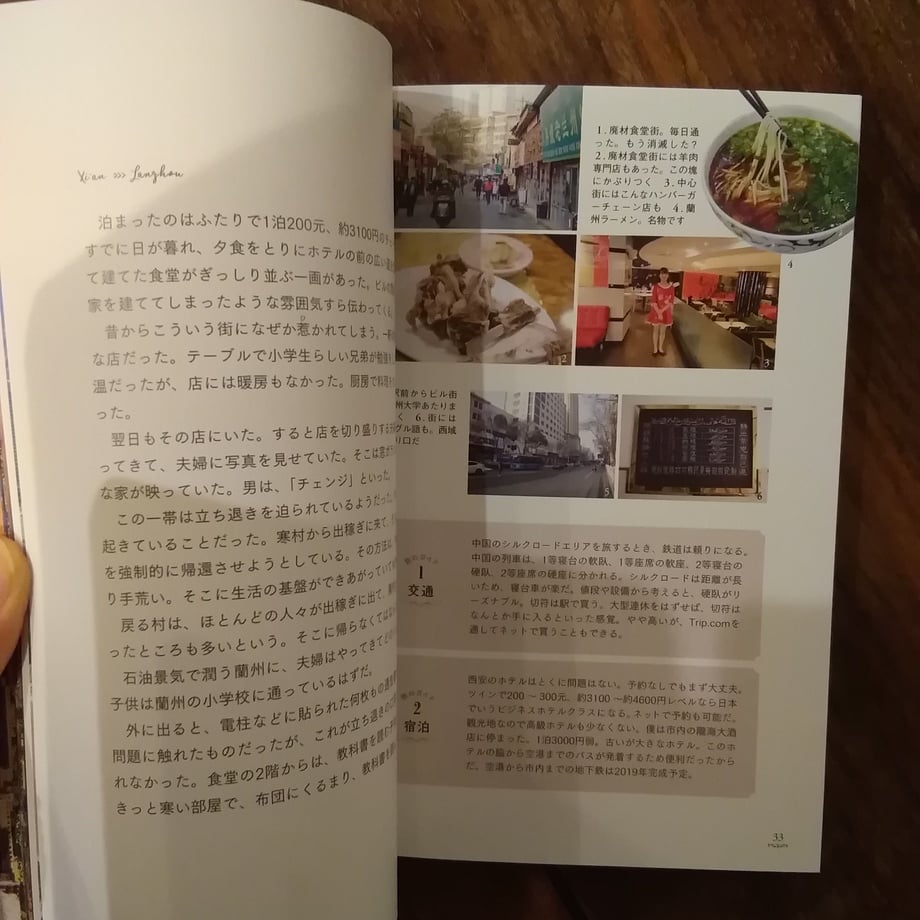 Xi'an >>> Lanzhou
泊まったのはふたりで1泊200元、約3100円の
すでに日が暮れ、夕食をとりにホテルの前の広い
て建てた食堂がぎっしり並ぶ一画があった。ビルの
家を建ててしまったような雰囲気すら伝わってくる
昔からこういう街になぜか惹かれてしまう。
な店だった。テーブルで小学生らしい兄弟が勉強を
温だったが、店には暖房もなかった。厨房で料理を
った。
翌日もその店にいた。すると店を切り盛りする
ってきて、夫婦に写真を見せていた。そこは
な家が映っていた。男は、「チェンジ」といった。
この一帯は立ち退きを迫られているようだった。
起きていることだった。寒村から出稼ぎに来て、
を強制的に帰還させようとしている。その方法は、
り手荒い。そこに生活の基盤ができあがっていて
戻る村は、ほとんどの人々が出稼ぎに出て、
ったところも多いという。そこに帰らなくては
石油景気で潤う蘭州に、夫婦はやってきて
子供は蘭州の小学校に通っているはずだ。
外に出ると、電柱などに貼られた何枚もの
問題に触れたものだったが、これが立ち退きの
れなかった。食堂の2階からは、教科書を読む
きっと寒い部屋で、布団にくるまり、教科書を
1.廃材食堂街。毎日通
った。もう消滅した?
2.廃材食堂街には羊肉
専門店もあった。この塊
にかぶりつく 3.中心
街にはこんなハンバーガ
ーチェーン店も 4.蘭
州ラーメン。名物です
4
2
3
駅前からビル街
州大学あたりま
く 6.街には
グル語も。西域
り口だ
5
6
1
交通
中国のシルクロードエリアを旅するとき、鉄道は頼りになる。
中国の列車は、1等寝台の軟臥、1等座席の軟座、2等寝台の
硬臥、2等座席の硬座に分かれる。シルクロードは距離が長
いため、寝台車が楽だ。値段や設備から考えると、硬臥がリ
ーズナブル。切符は駅で買う。大型連休をはずせば、切符は
なんとか手に入るといった感覚。やや高いが、Trip.comを
通してネットで買うこともできる。
2
宿泊
西安のホテルはとくに問題はない。予約なしでもまず大丈夫。
ツインで200〜300元、約3100〜約4600円レベルなら日本
でいうビジネスホテルクラスになる。ネットで予約も可能だ。
観光地なので高級ホテルも少なくない。僕は市内の隴海大酒
店に停まった。1泊3000円弱。古いが大きなホテル。このホ
テルの脇から空港までのバスが発着するため便利だったから
だ。空港から市内までの地下鉄は2019年完成予定。
33